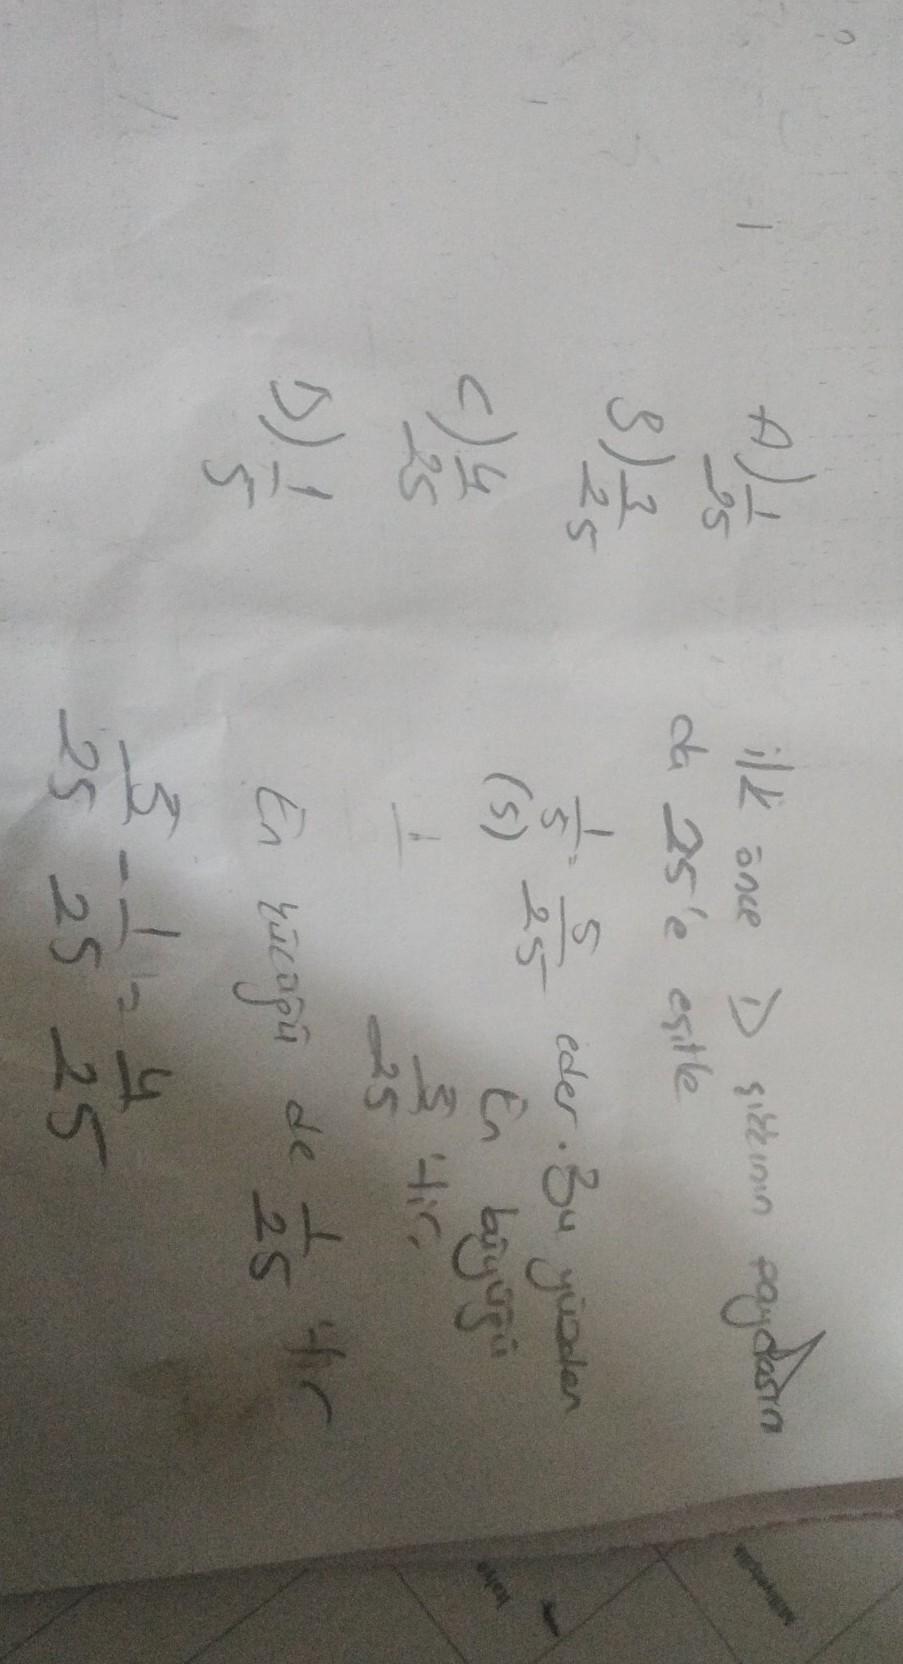 A) 1/25
B) 3/25
C) 4/25
D) 1/5
ilk önce D şıkkının paydasın
da 25'e eşitle
1/5 = 5/25 eder. Bu yüzden
(5)
En büyüğü
5/25 'tir.
En küçüğü de 1/25 'tir
5/25 - 1/25 = 4/25